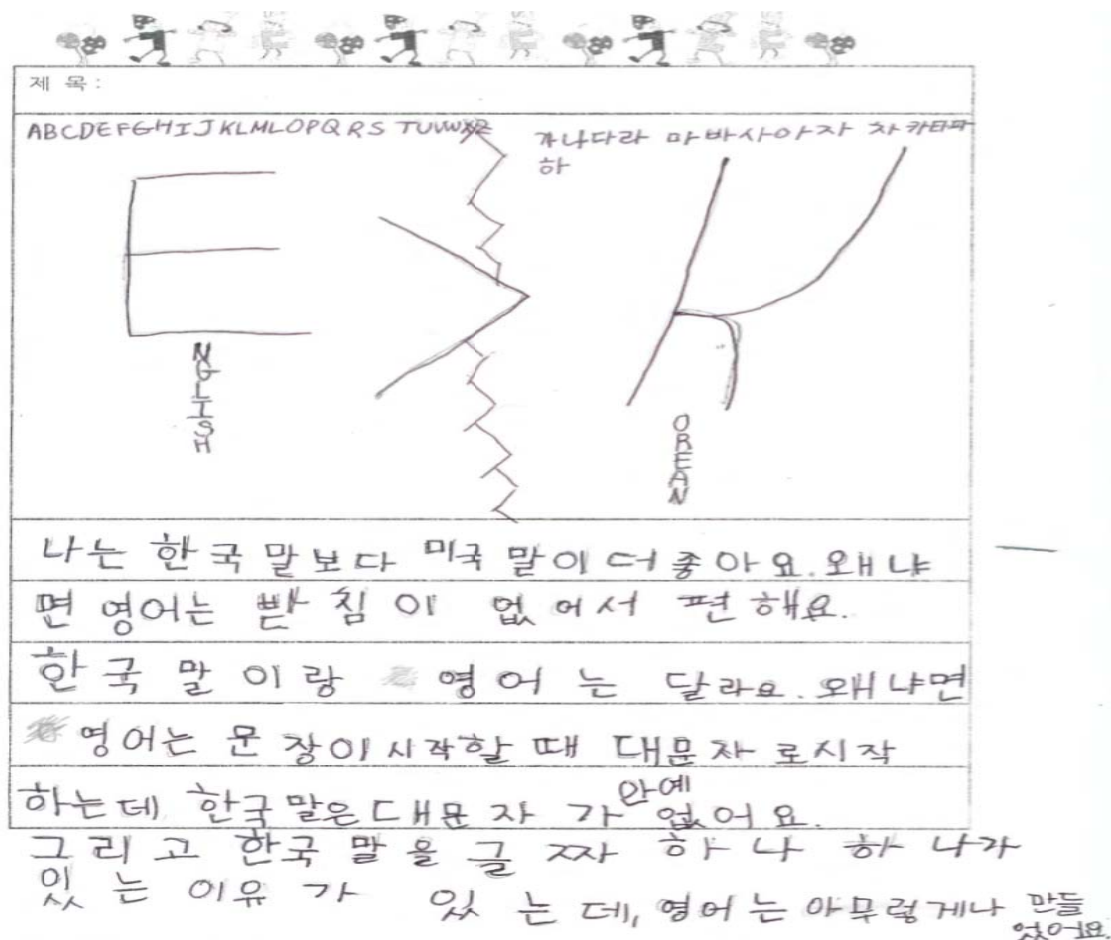 제 목 :
ABCDEFGHIJKLMLOPQRS TUVWXZ
가나다라 마바사아자 차카타파
하
E
NGLISH
>
K
OREAN
나는 한국말보다 미국말이 더 좋아요. 왜냐
면 영어는 빧침이 없어서 편해요.
한국말이랑 영어는 달라요. 왜냐면
영어는 문장이 시작할 때 대문자로 시작
하는데 한국말은 대문자가 안예 없어요.
그리고 한국말을 글짜 하나하나가
있는 이유가 있는데, 영어는 아무렇게나 만들
었어요.